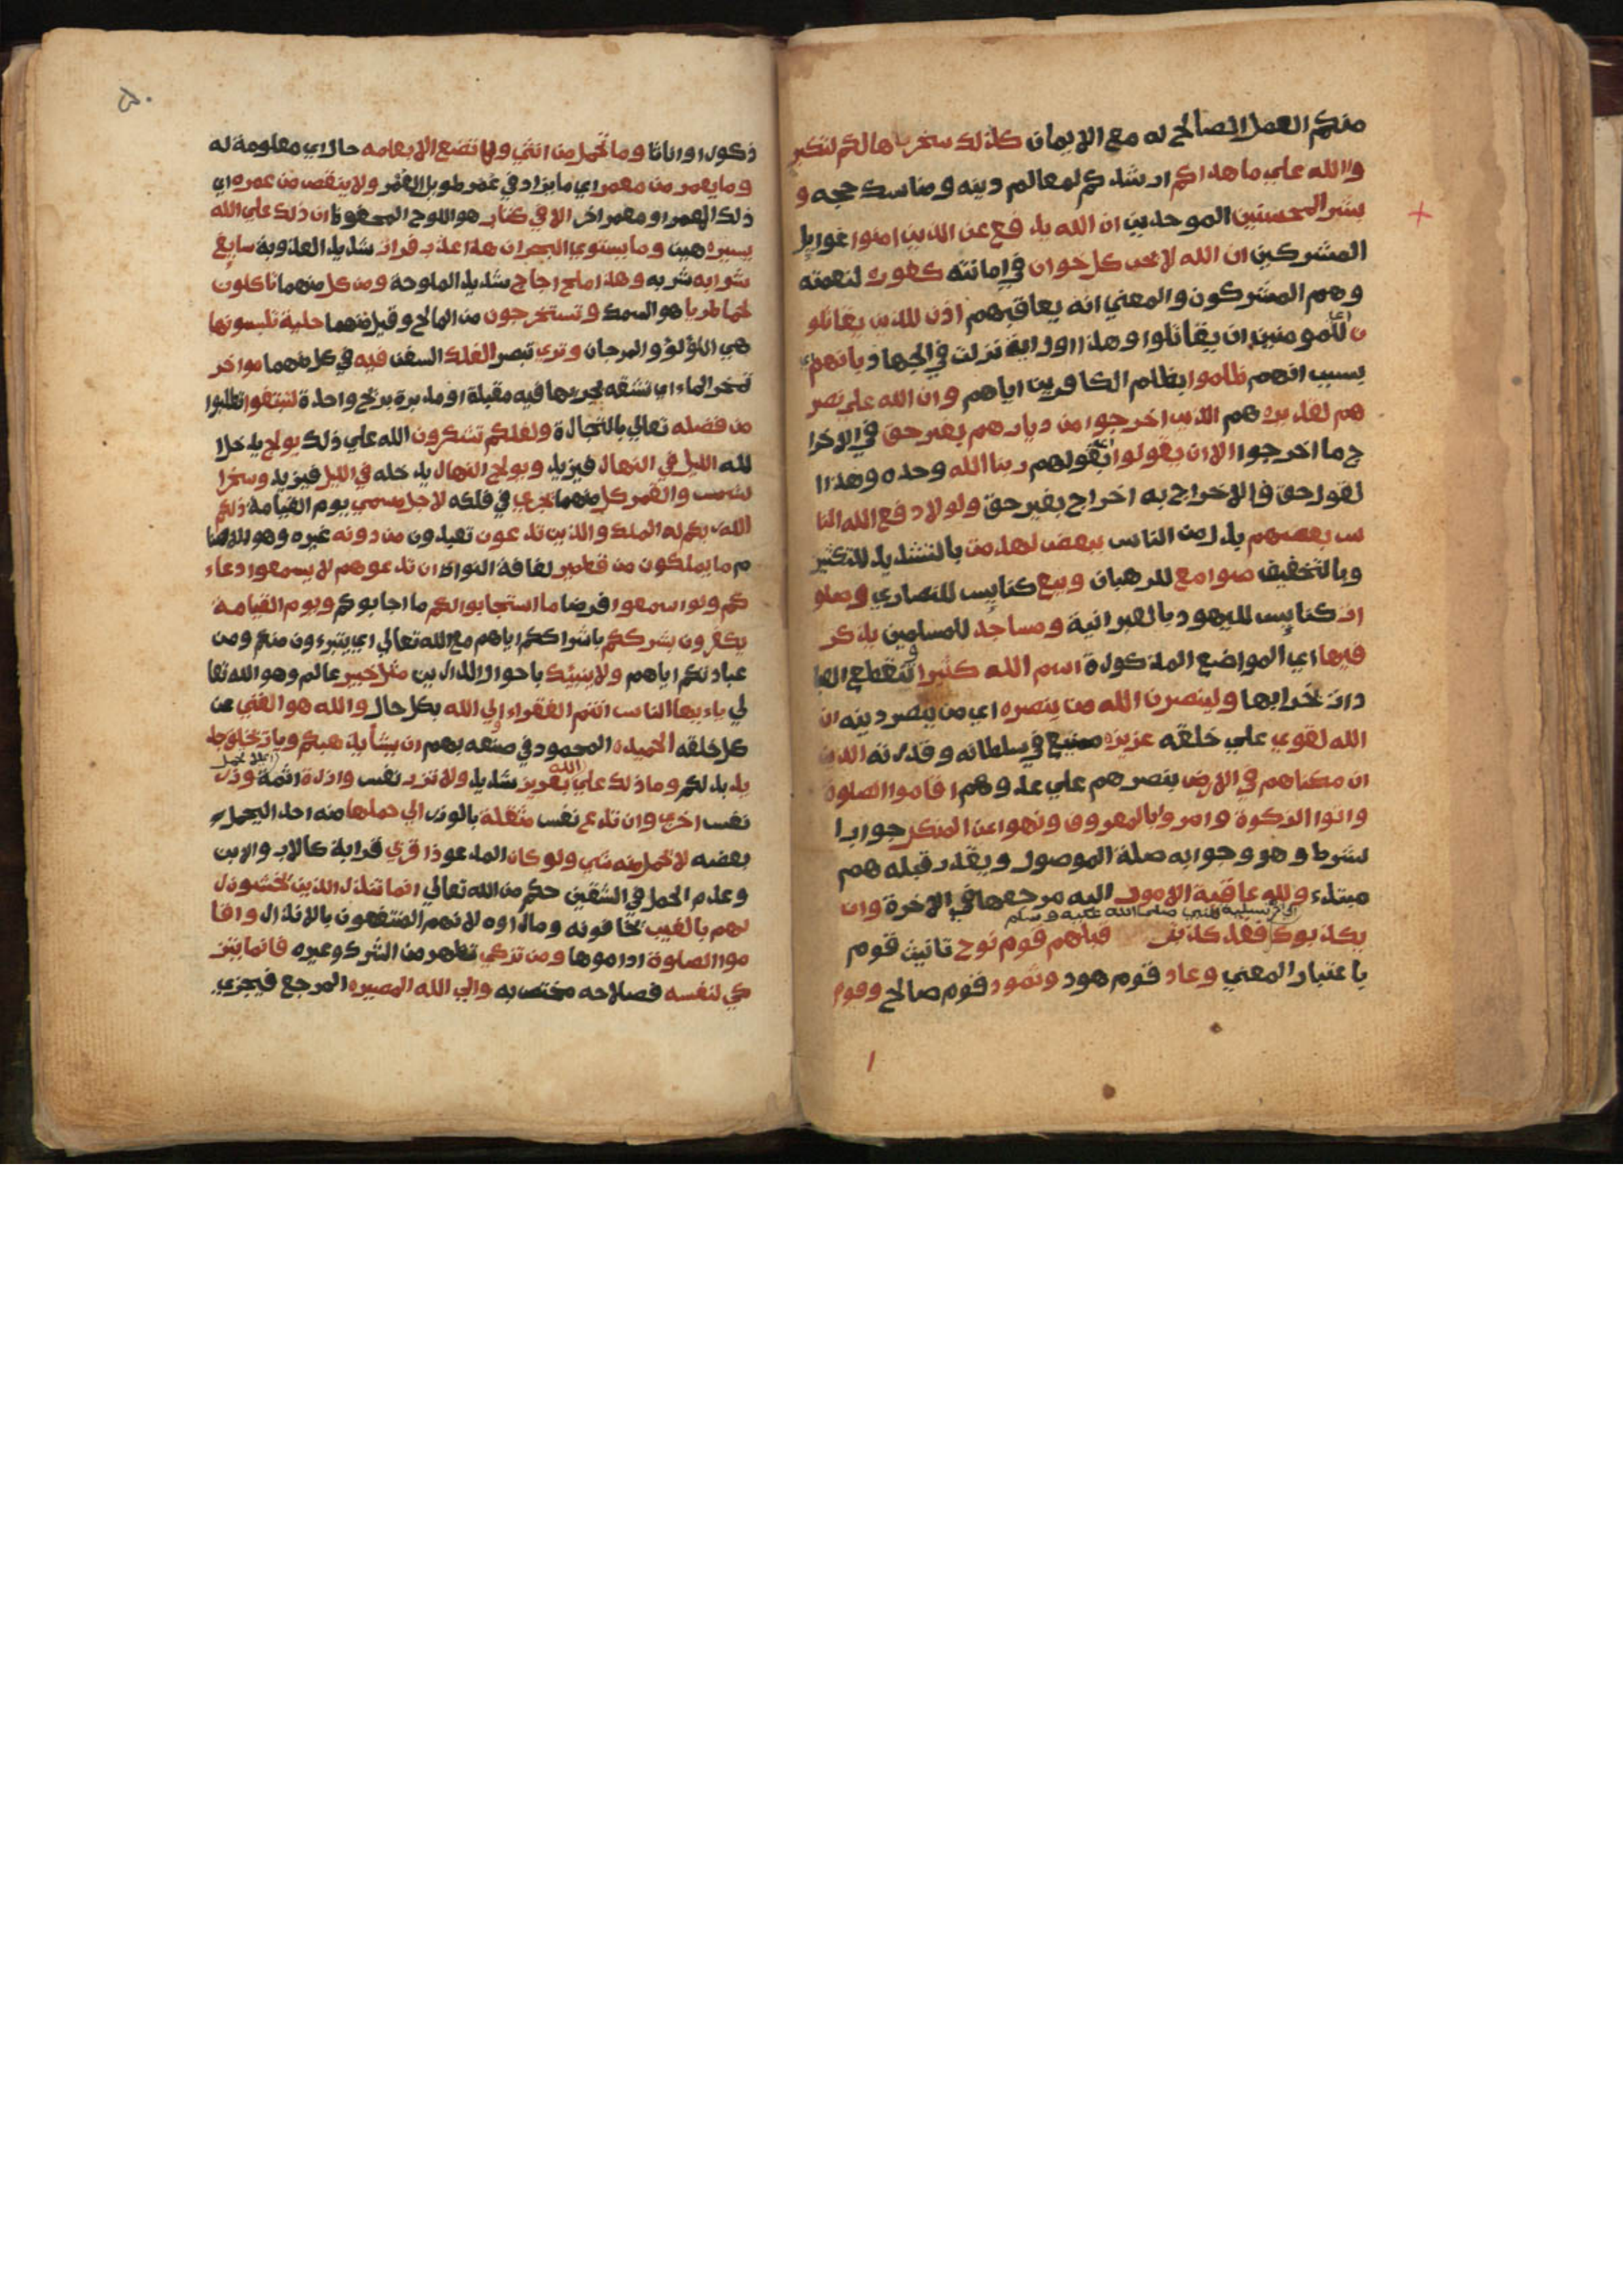 منكم العمل الصالح له مع الايمان كذلك سخرها لكم لتكبر
والله علي ما هداكم ارشدكم لمعالم دينه ومناسك حجه و
بشر المحسنين الموحدين ان الله يدفع عن الذين امنوا غوايل
المشركين ان الله لا يحب كل خوان في امانته كفور لنعمته
وهم المشركون والمعني انه يعاقبهم اذن للذين يقاتلو
ن للمومنين ان يقاتلوا وهذا اول اية نزلت في الجهاد بانهم اي
بسبب انهم ظلموا بظلم الكافرين اياهم وان الله علي نصر
هم لقدير هم الذين اخرجوا من ديارهم بغير حق في الاخرا
ج ما اخرجوا الا ان يقولوا اي بقولهم ربنا الله وحده وهذا ا
لقول حق فالاخراج به اخراج بغير حق ولولا دفع الله النا
س بعضهم بدل من الناس ببعض لهدمت بالتشديد للتكثير
وبالتخفيف صوامع للرهبان وبيع كنايس للنصاري وصلو
ات كنايس لليهود بالعبرانية ومساجد للمسلمين يذكر
فيها اي المواضع المذكورة اسم الله كثيرا وتنقطع العبا
دات بخرابها ولينصرن الله من ينصره اي من ينصر دينه ان
الله لقوي علي خلقه عزيز منيع في سلطانه وقدرته الذين
ان مكناهم في الارض بنصرهم علي عدوهم اقاموا الصلوة
واتوا الزكوة وامروا بالمعروف ونهوا عن المنكر جواب ا
لشرط وهو وجوابه صلة الموصول ويقدر قبله هم
مبتدء ولله عاقبة الامور اليه مرجعها في الاخرة وان
تسلية للنبي صلي الله عليه وسلم
يكذبوك فقد كذبت قبلهم قوم نوح تانيث قوم
باعتبار المعني وعاد قوم هود وثمود قوم صالح وقوم
ذكورا واناثا وما تحمل من انثي ولا تضع الا بعلمه حال اي معلومة له
وما يعمر من معمر اي ما يزاد في عمر طويل العمر ولا ينقص من عمره اي
ذلك المعمر او معمر اخر الا في كتاب هو اللوح المحفوظ ان ذلك علي الله
يسير هين وما يستوي البحران هذا عذب فرات شديد العذوبة سايغ
شرابه شربه وهذا ملح اجاج شديد الملوحة ومن كل منهما تاكلون
لحما طريا هو السمك وتستخرجون من المالح وقيل منهما حلية تلبسونها
هي اللؤلؤ والمرجان وتري تبصر الفلك السفن فيه في كل منهما مواخر
تمخر الماء اي تشقه بجريها فيه مقبلة او مدبرة بريح واحدة لتبتغوا تطلبوا
من فضله تعالي بالتجارة ولعلكم تشكرون الله علي ذلك يولج يدخل ا
لله الليل في النهار فيزيد ويولج النهار يدخله في الليل فيزيد وسخر ا
لشمس والقمر كل منهما يجري في فلكه لاجل مسمي يوم القيامة ذلكم
الله ربكم له الملك والذين تدعون تعبدون من دونه غيره وهو الاصنا
م ما يملكون من قطمير لفافة النواة ان تدعوهم لا يسمعوا دعاء
كم ولو اسمعوا فرضا ما استجابوا لكم ما اجابوكم ويوم القيامة
يكفرون بشرككم باشراككم اياهم مع الله تعالي اي يتبرءون منكم ومن
عبادتكم اياهم ولا ينبئك باحوال الدارين مثل خبير عالم وهو الله تعا
لي يا ءيها الناس انتم الفقراء الي الله بكل حال والله هو الغني عن
كل خلقه الحميد المحمود في صنعه بهم ان يشأ يذهبكم ويات بخلق جد
يد بدلكم وما ذلك علي الله بعزيز شديد ولا تزر نفس وازرة اثمة وزر
نفس اخري وان تدع نفس مثقلة بالوزر الي حملها منه احد اليحمل
بعضه لا يحمل منه شي ولو كان المدعو ذا قربي قرابة كالاب والابن
وعدم الحمل في الشقين حكم من الله تعالي انما تنذر الذين يخشون ر
بهم بالغيب يخافونه وما راوه لانهم المنتفعون بالانذار واقا
موا الصلوة اداموها ومن تزكي تطهر من الشرك وغيره فانما يتز
كي لنفسه فصلاحه مختص به والي الله المصير المرجع فيجزي